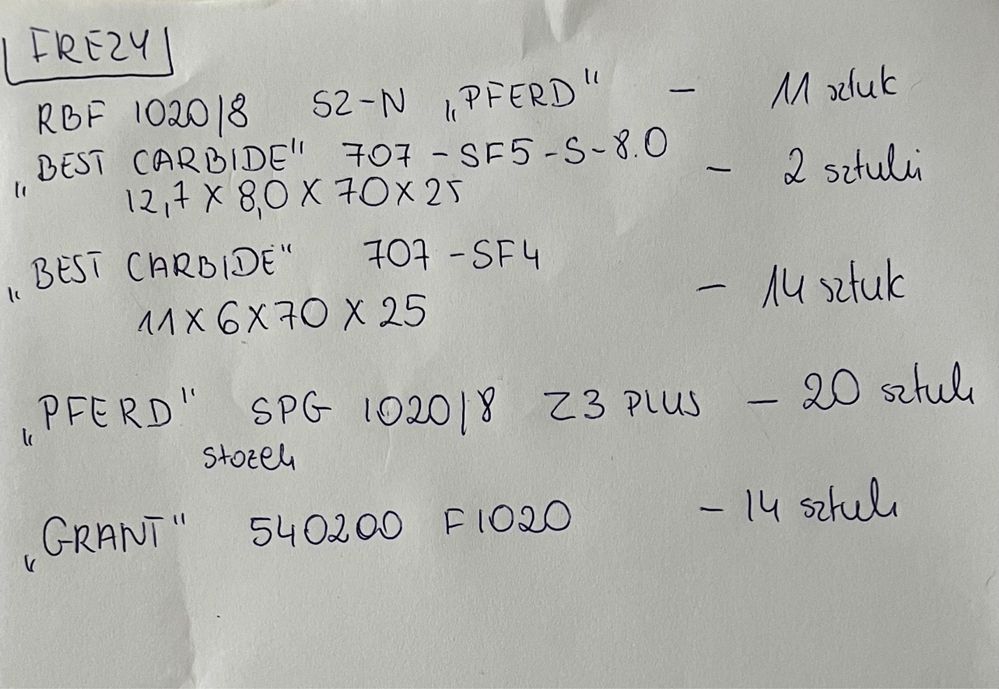 FREZY
RBF 1020/8 SZ-N „PFERD" - 11 sztuk
„BEST CARBIDE" 707 - SF5 - S - 8.0
12,7 X 8,0 X 70 X 25 - 2 sztuki
„BEST CARBIDE" 707 - SF4
11 X 6 X 70 X 25 - 14 sztuk
„PFERD" SPG 1020/8 Z3 PLUS - 20 sztuk
stozek
„GRANT" 540200 F1020 - 14 sztuk